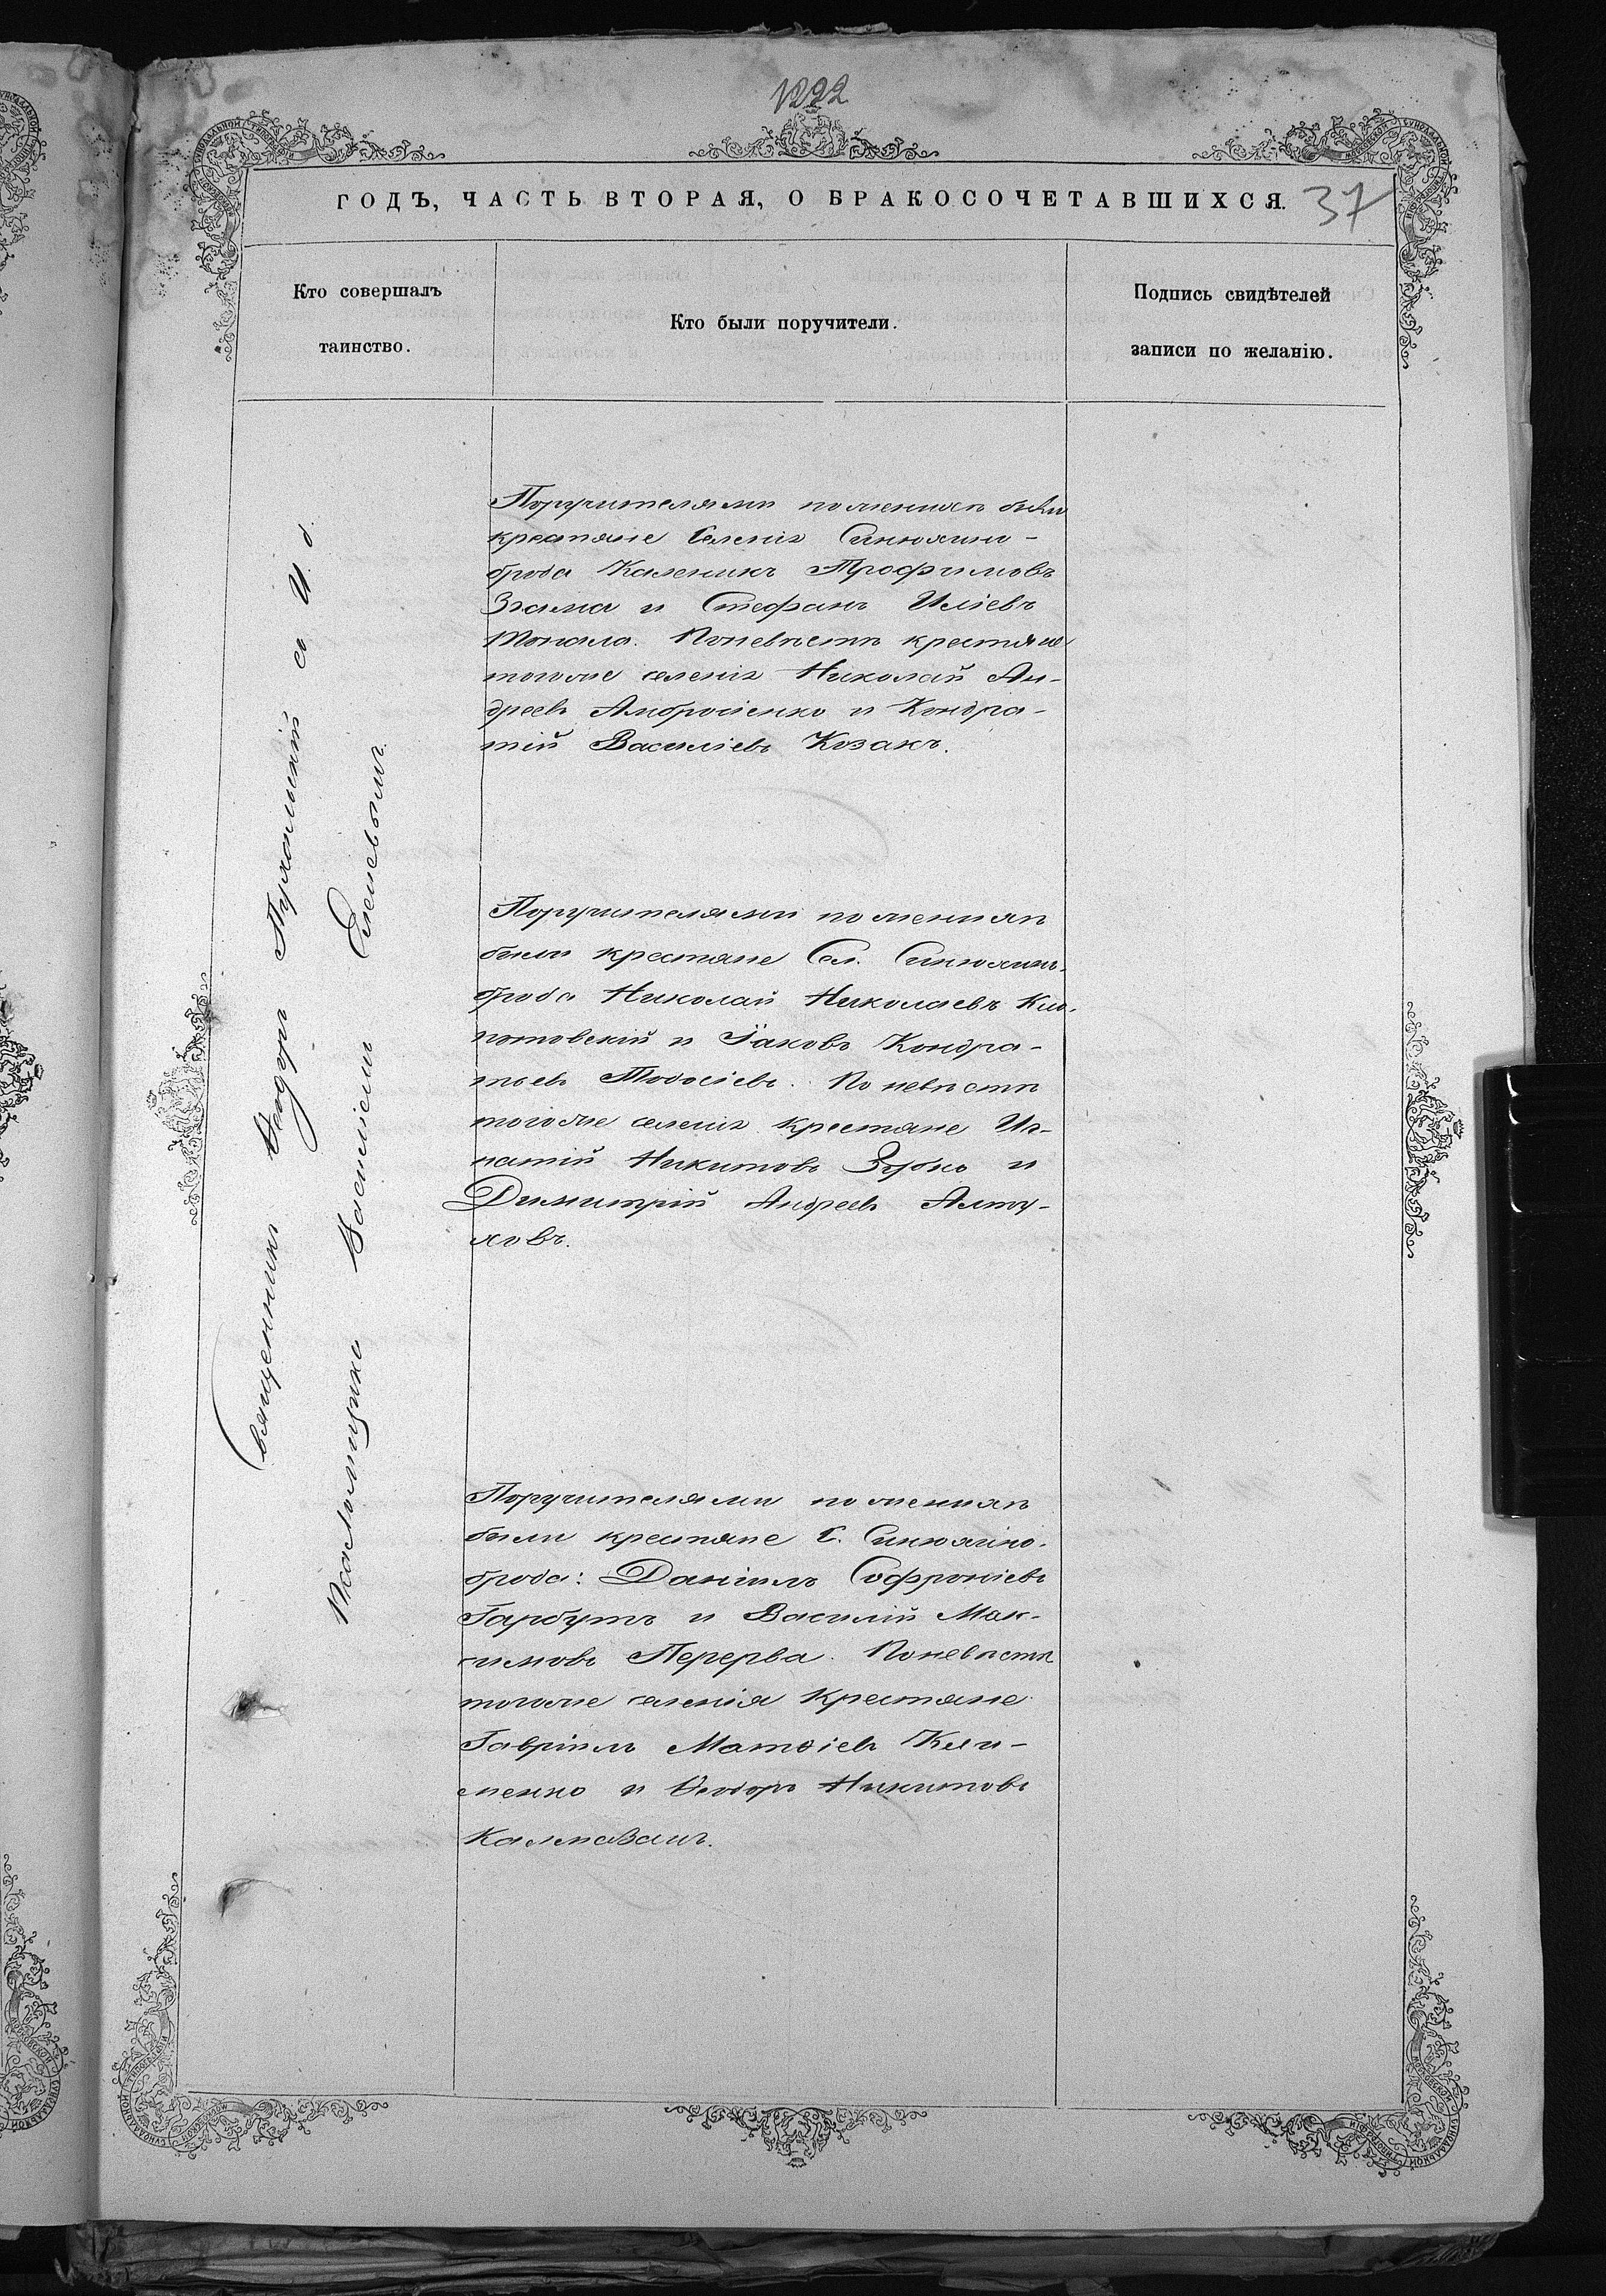 1222
ГОДЪ, ЧАСТЬ ВТОРАЯ, О БРАКОСОЧЕТАВШИХСЯ.
37
Кто совершалъ
таинство.
Кто были поручители.
Подпись свидѣтелей
записи по желанію.
Священникъ Ѳеодоръ со И. д.
Псаломщика Василіемъ
Поручителями по женихѣ были
крестяне Селенія Синюхино-
брода Каленикъ Трофимовъ
и Стефанъ Иліевъ
Топала. По невѣстѣ крестяне
тогоже селенія Николай Ан-
дреевъ Амбросіенко и Кондра-
тій Василіевъ Козакъ.
Поручителями по женихѣ
были крестяне Сел. Синюхин.
брода Николай Николаевъ
и Іаковъ Кондра-
тьевъ Тодосіевъ. По невѣстѣ
тогоже селенія крестяне Иг-
натій Никитовъ и
Димитрій Андреевъ Алту-
ховъ.
Поручителями по женихѣ
были крестяне С. Синюхино.
брода: Даніилъ Софроніевъ
Гарбузъ и Василій Мак-
симовъ Перерва. По невѣстѣ
тогоже селенія крестяне
Гавріилъ Матѳіевъ Кли-
менко и Ѳеодоръ Никитовъ